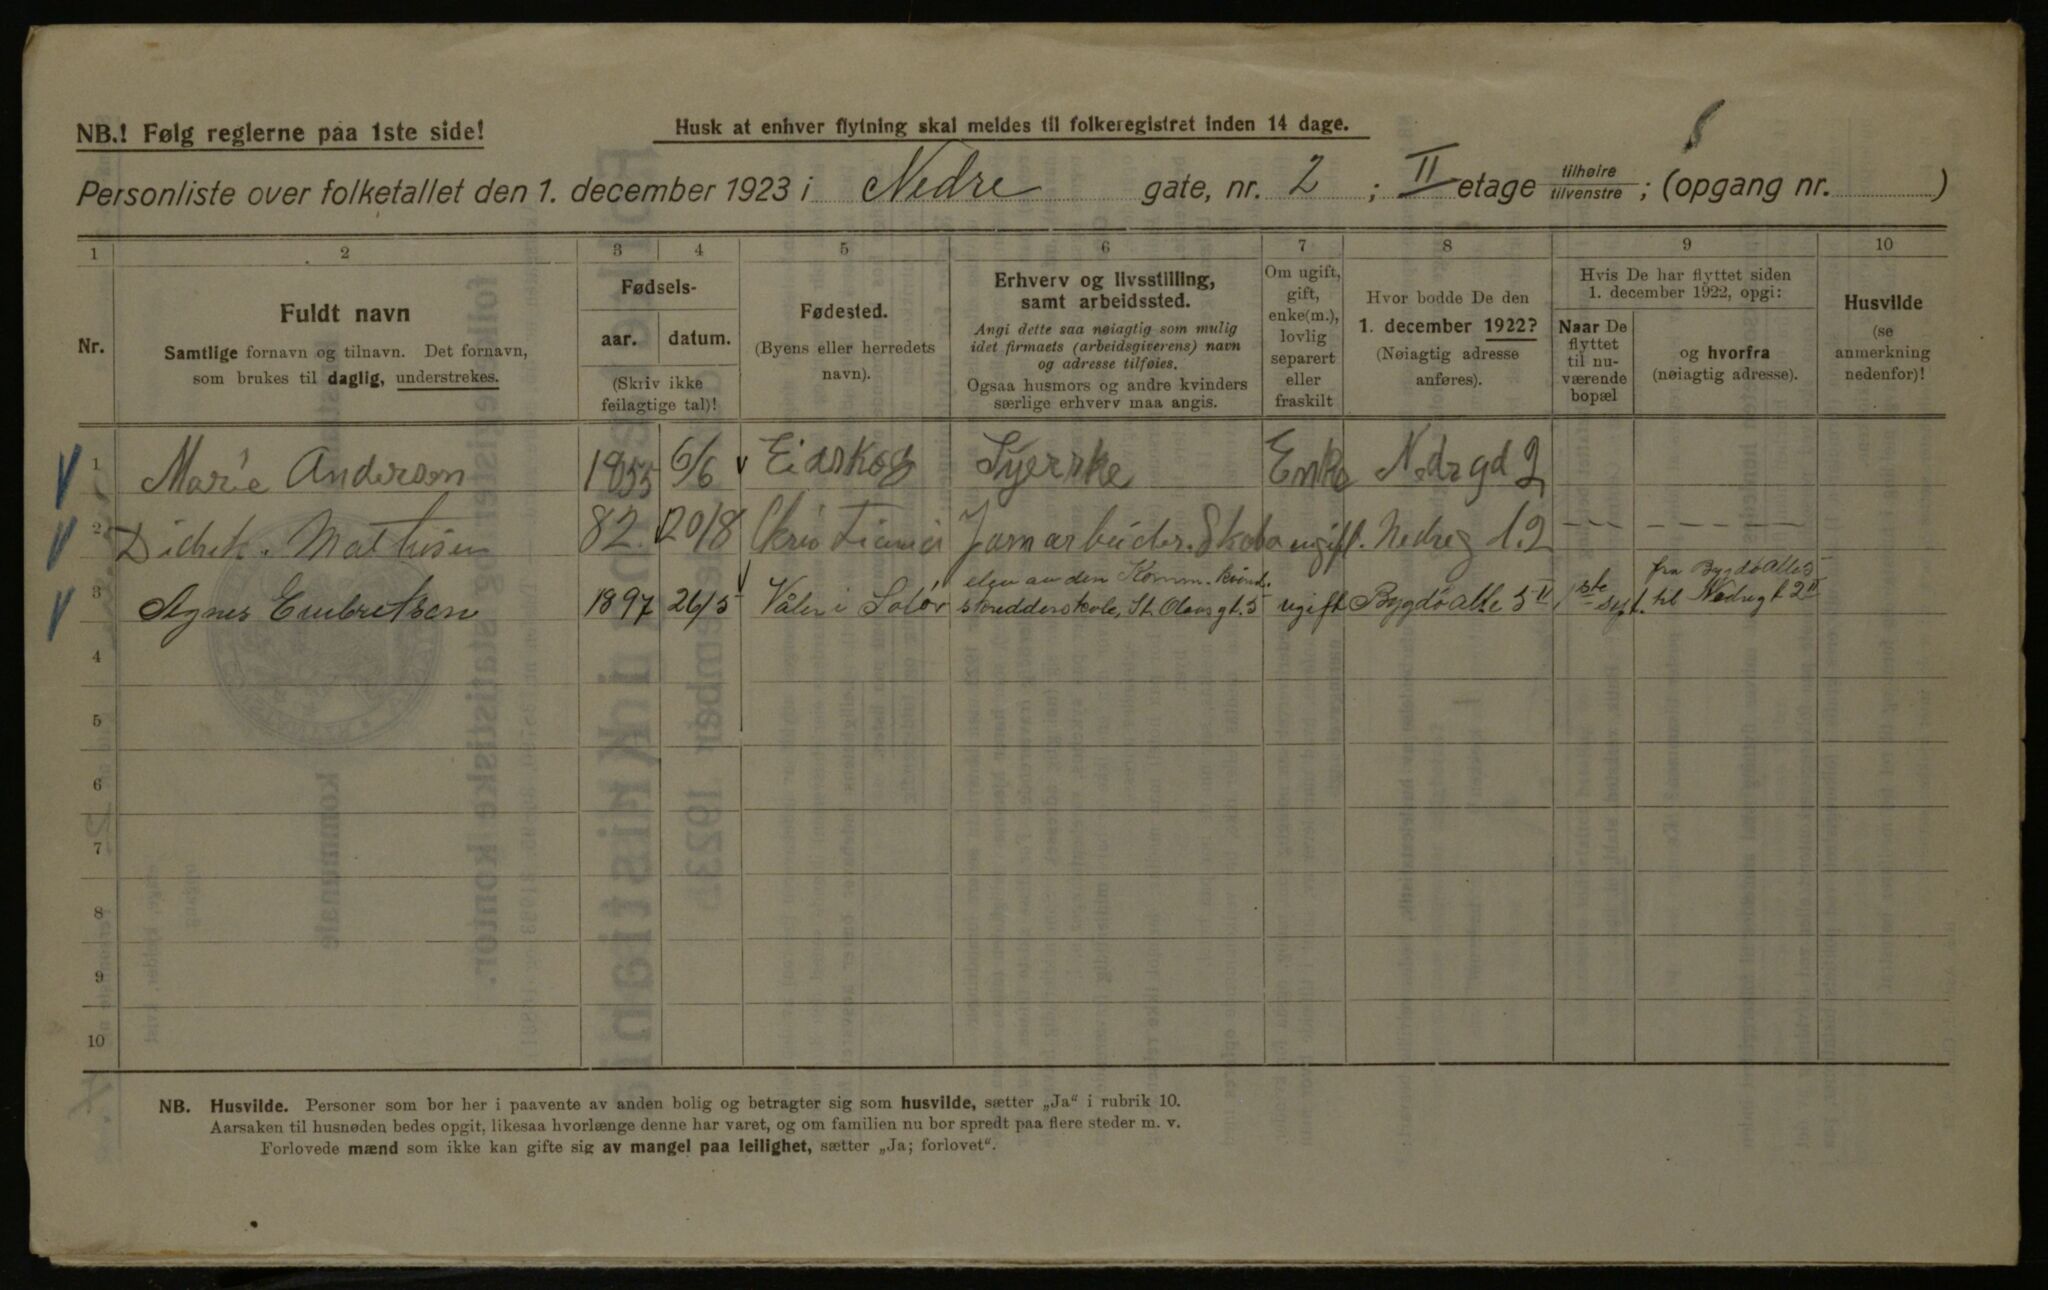 NB.! Følg reglerne paa 1ste side!
Husk at enhver flytning skal meldes til folkeregistret inden 14 dage.
Personliste over folketallet den 1. december 1923 i Nedre gate, nr. 2 ; II etage tilhøire tilvenstre ; (opgang nr. )
1 2 3 4 5 6 7 8 9 10
Nr.
Fuldt navn
Samtlige fornavn og tilnavn. Det fornavn,
som brukes til daglig, understrekes.
Fødsels-
aar. datum.
(Skriv ikke
feilagtige tal)!
Fødested.
(Byens eller herredets
navn).
Erhverv og livsstilling,
samt arbeidssted.
Angi dette saa nøiagtig som mulig
idet firmaets (arbeidsgiverens) navn
og adresse tilføies.
Ogsaa husmors og andre kvinders
særlige erhverv maa angis.
Om ugift,
gift,
enke(m.),
lovlig
separert
eller
fraskilt
Hvor bodde De den
1. december 1922?
(Nøiagtig adresse
anføres).
Hvis De har flyttet siden
1. december 1922, opgi:
Naar De
flyttet
til nu-
værende
bopæl
og hvorfra
(nøiagtig adresse).
Husvilde
(se
anmerkning
nedenfor)!
1 Marie Anderson 1855 6/6 Eidskog Syerske Enke Nedregd 2
2 Didrek. Mathisen 82. 20/8 Kristiania Jarnarbeider. ugift. Nedreg d. 2
elev av den Komm. kvind. fra Bygdø Alle 5
3 Agnes Embretsen 1897 26/5 Våler i Solør skredderskole, St. Olavsgt. 5 ugift Bygdø Alle 5 II 1ste sept. til Nedregt 2 II
4
5
6
7
8
9
10
NB. Husvilde. Personer som bor her i paavente av anden bolig og betragter sig som husvilde, sætter „Ja" i rubrik 10.
Aarsaken til husnøden bedes opgit, likesaa hvorlænge denne har varet, og om familien nu bor spredt paa flere steder m. v.
Forlovede mænd som ikke kan gifte sig av mangel paa leilighet, sætter „Ja; forlovet".